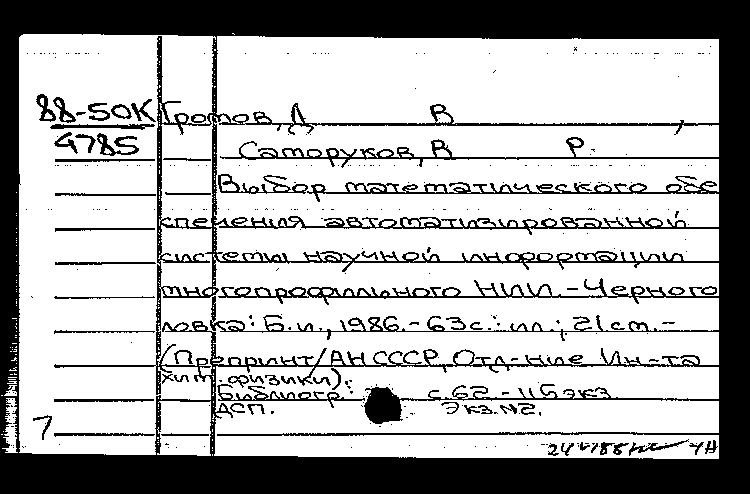 88-50К Громов, Д В ,
4785 Саморуков, В Р.
Выбор математического обе
спечения автоматизированной
системы научной информации
многопрофильного НИИ.-Черного
ловка: Б.и., 1986.-63с.:ил.; 21ст.-
(Препринт/АН СССР, Отд-ние Ин-та
хим. физики).
Библиогр.: с.62.-115экз.
ДСП. Экз.N2.
7
ЧН